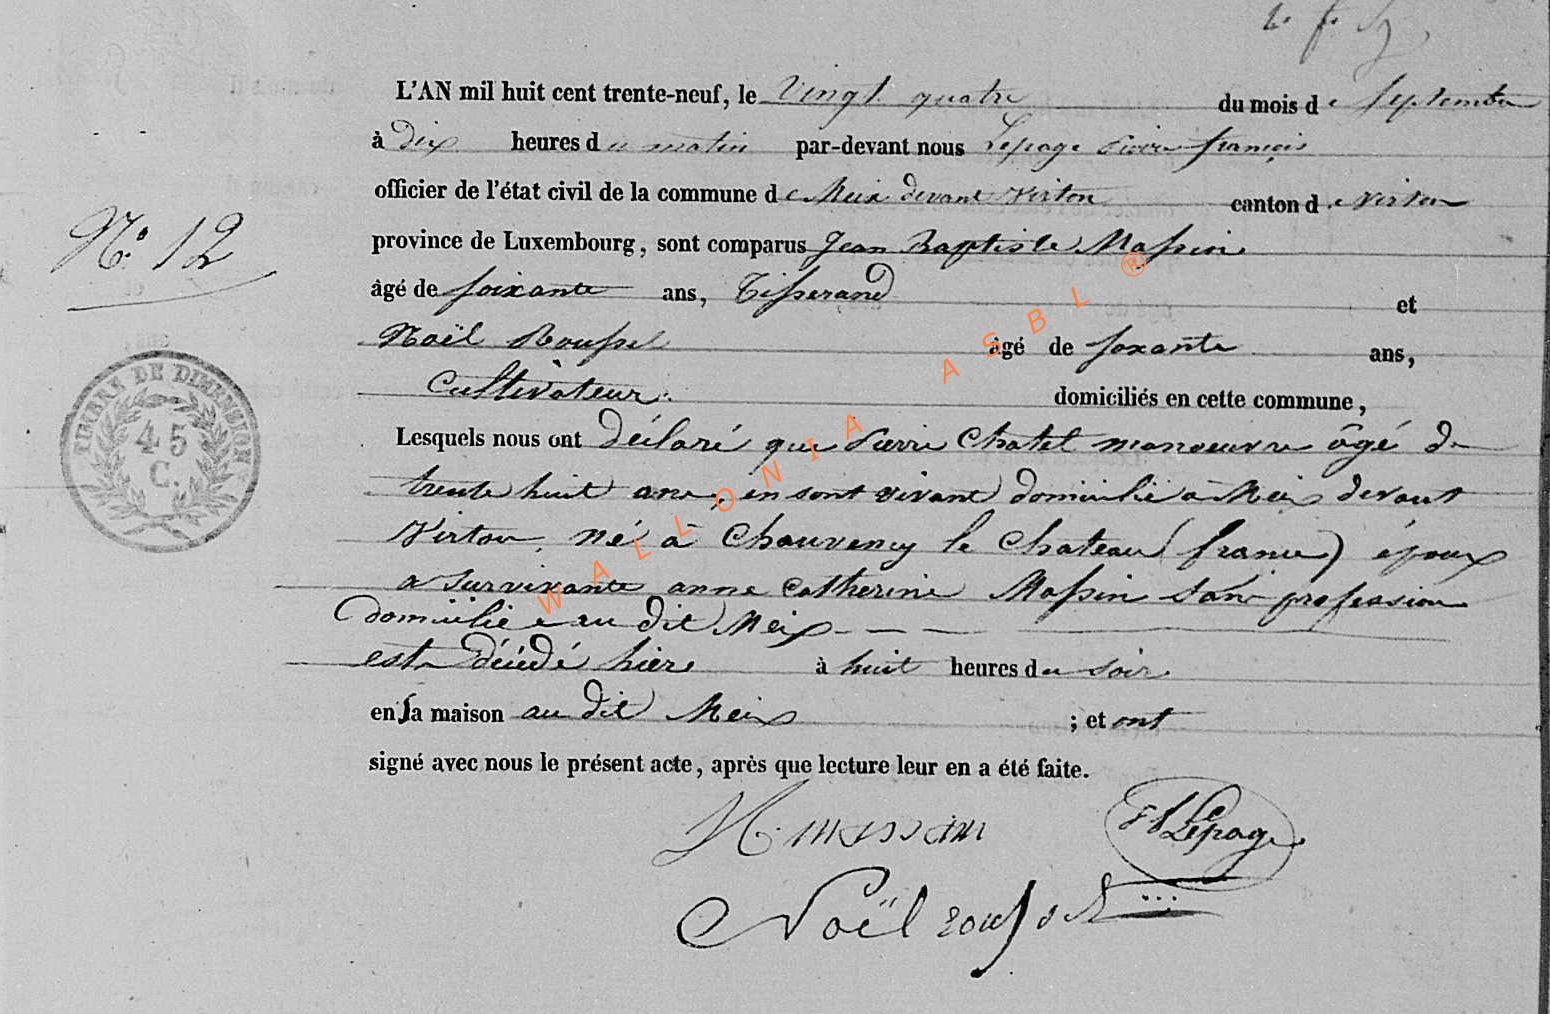 L'AN mil huit cent trente-neuf, le Vingt quatre du mois de Septembre
à dix heures du matin par-devant nous Lepage Pierre françois
officier de l'état civil de la commune de Meix devant Virton canton de Virton
province de Luxembourg, sont comparus Jean Baptiste Massin
N.° 12
âgé de soixante ans, Tisserand et
Noël Roussel âgé de soxante ans,
Cultivateur. domiciliés en cette commune,
TIMBRE DE DIMENSION
45
C.
Lesquels nous ont déclaré que Pierre Chatel manoeuvre âgé de
trente huit ans, en sont vivant domicilié à Meix devant
Virton, né à Chauvency le Chateau (france) époux
a survivante anne Catherine Massin sans profession
domiciliée au dit Meix
est décédé hier à huit heures du soir
en sa maison au dit Meix ; et ont
signé avec nous le présent acte, après que lecture leur en a été faite.
massin Lepage
Noël roussel
WALLONIA ASBL ®